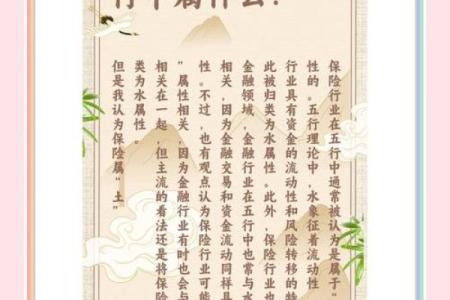 行中属什么?
保险行业在五行中通常被认为是属于“
性的。五行理论中，水象征着流动性
行业具有资金的流动性和风险转移的特
此被归类为水属性。此外，保险行业也
金融领域，金融行业在五行中也常与水
相关，因为金融交易和资金流动同样具
性。不过，也有观点认为保险行业可能
”属性相关，因为金融行业有时也会与
相关在一起，但主流的看法还是将保险
类为水属性。
但是我认为保险属“土”